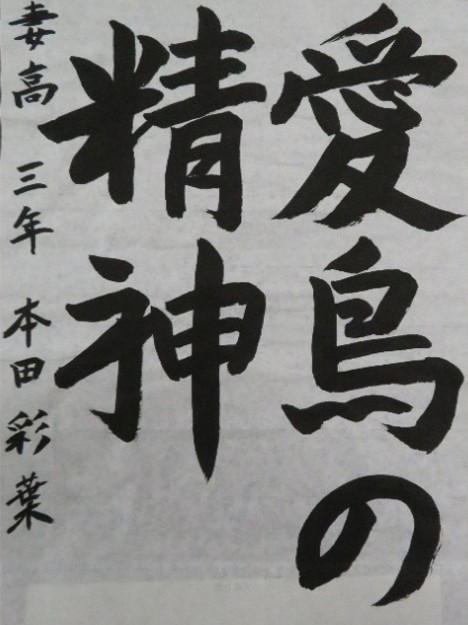 愛鳥の
精神
妻高 三年 本田彩葉